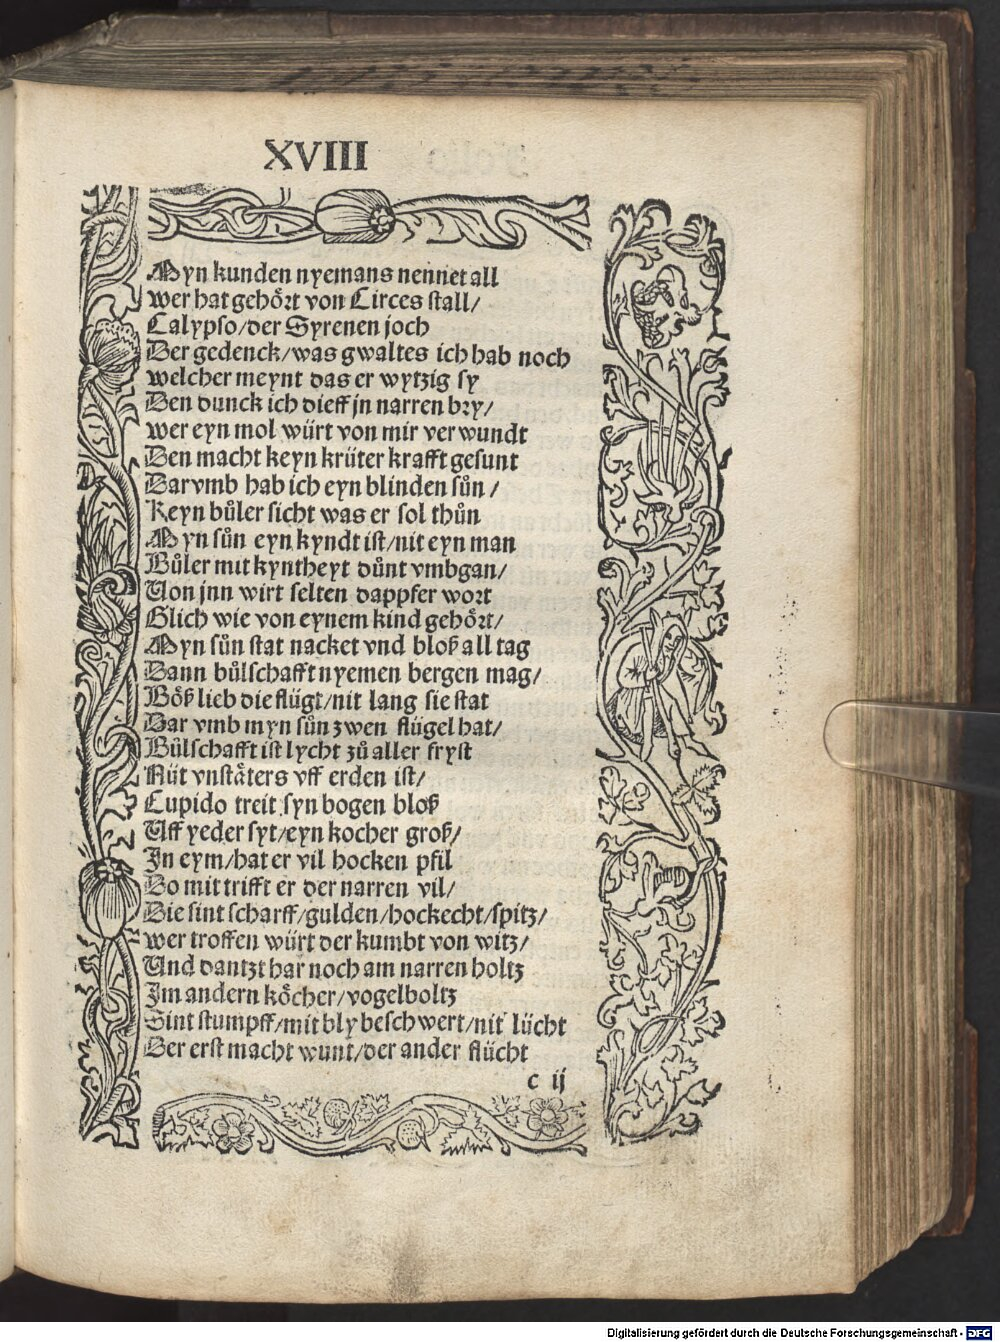 XVIII
Myn kunden nyemans nennet all
wer hat gehoͤrt von Circes stall/
Calypso/der Syrenen joch
Der gedenck/was gwaltes ich hab noch
welcher meynt das er wytzig sy
Den dunck ich dieff jn narren bry/
wer eyn mol würt von mir verwundt
Den macht keyn krüter krafft gesunt
Darvmb hab ich eyn blinden suͦn/
Keyn buͦler sicht was er sol thuͦn
Myn suͦn eyn kyndt ist/nit eyn man
Buͦler mit kyntheyt duͦnt vmbgan/
Uon jnn wirt selten dappfer wort
Glich wie von eynem kind gehoͤrt/
Myn suͦn stat nacket vnd bloß all tag
Dann buͦlschafft nyemen bergen mag/
Boͤß lieb die flügt/nit lang sie stat
Dar vmb myn suͦn zwen flügel hat/
Buͦlschafft ist lycht zuͦ aller fryst
Nüt vnstaͤters vff erden ist/
Cupido treit syn bogen bloß
Uff yeder syt/eyn kocher groß/
In eym/hat er vil hocken pfil
Do mit trifft er der narren vil/
Die sint scharff/gulden/hockecht/spitz/
wer troffen würt der kumbt von witz/
Und dantzt har noch am narren holtz
Im andern koͤcher/vogelboltz
Sint stumpff/mit bly beschwert/nit lücht
Der erst macht wunt/der ander flücht
c ij
Digitalisierung gefördert durch die Deutsche Forschungsgemeinschaft - DFG